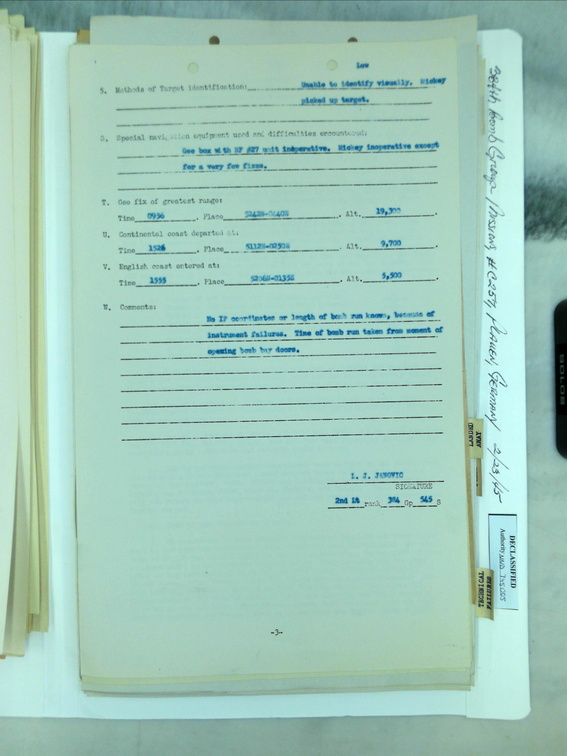 Low
S. Methods of Target identification: Unable to identify visually. Mickey
picked up target.
S. Special navigation equipment used and difficulties encountered:
Gee box with RF #27 unit inoperative. Mickey inoperative except
for a very few fixes.
T. Gee fix of greatest range:
Time 0936 . Place . Alt. 19,300 .
U. Continental coast departed at:
Time 1526 . Place 5112N-0250E . Alt. 9,700 .
V. English coast entered at:
Time 1555 . Place 5206N-0135E . Alt. 5,500 .
W. Comments:
No IP coordinates or length of bomb run known, because of
instrument failures. Time of bomb run taken from moment of
opening bomb bay doors.
L. J. JANOVIC
SIGNATURE
2nd Lt rank 384 Gp 545 S
-3-
384th Bomb Group / Mission #C257, Plauen, Germany 2/23/45
AWAY
LANDED
TECHNICAL
FAILURES
DECLASSIFIED
Authority NND 745005